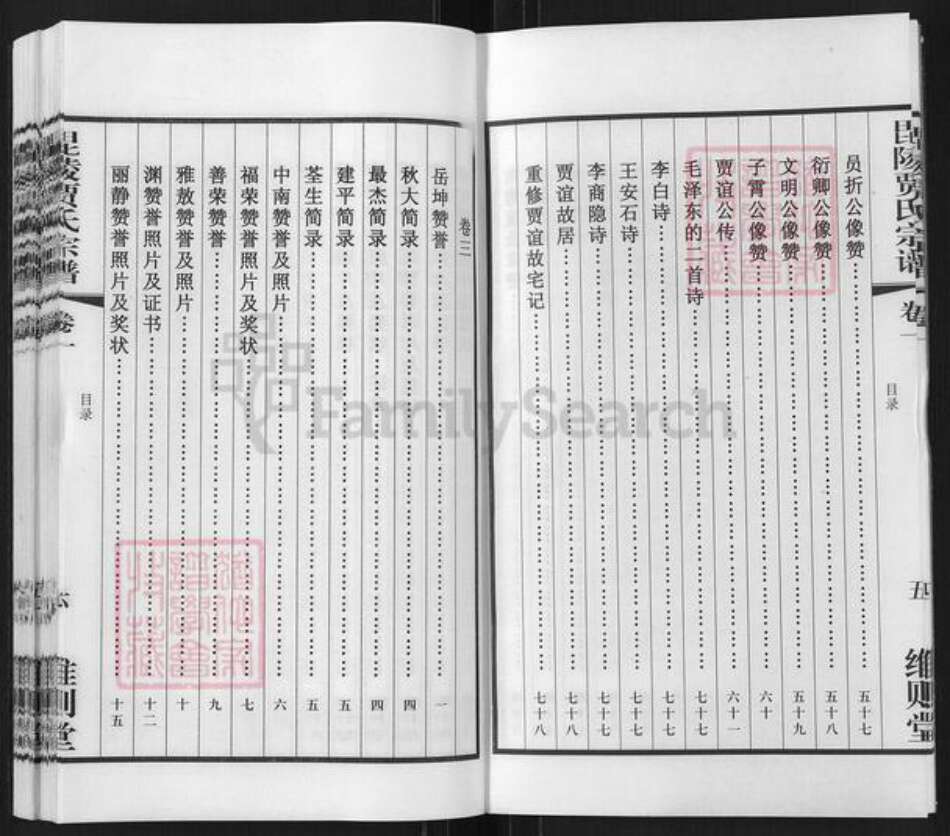 毘陵贾氏宗谱 卷一
目录
五
维则堂
员折公像赞 五十七
衍卿公像赞 五十八
文明公像赞 五十九
子霄公像赞 六十
贾谊公传 六十一
毛泽东的二首诗 七十七
李白诗 七十七
王安石诗 七十七
李商隐诗 七十七
贾谊故居 七十八
重修贾谊故宅记 七十八
卷三
岳坤赞誉 一
秋大简录 四
最杰简录 四
建平简录 五
荃生简录 五
中南赞誉及照片 六
福荣赞誉照片及奖状 七
善荣赞誉 九
雅敖赞誉及照片 十
渊赞誉照片及证书 十二
丽静赞誉照片及奖状 十五
毘陵贾氏宗谱 卷一
目录
维则堂
FamilySearch